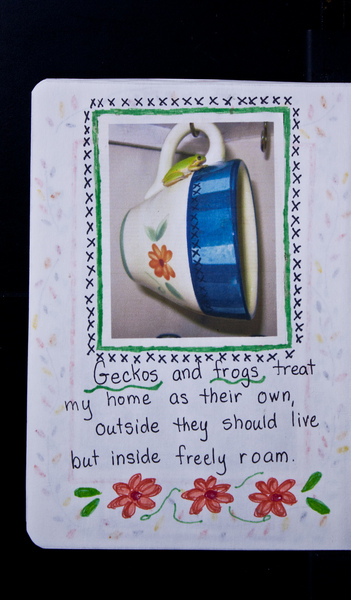 Geckos and frogs treat
my home as their own,
outside they should live
but inside freely roam.